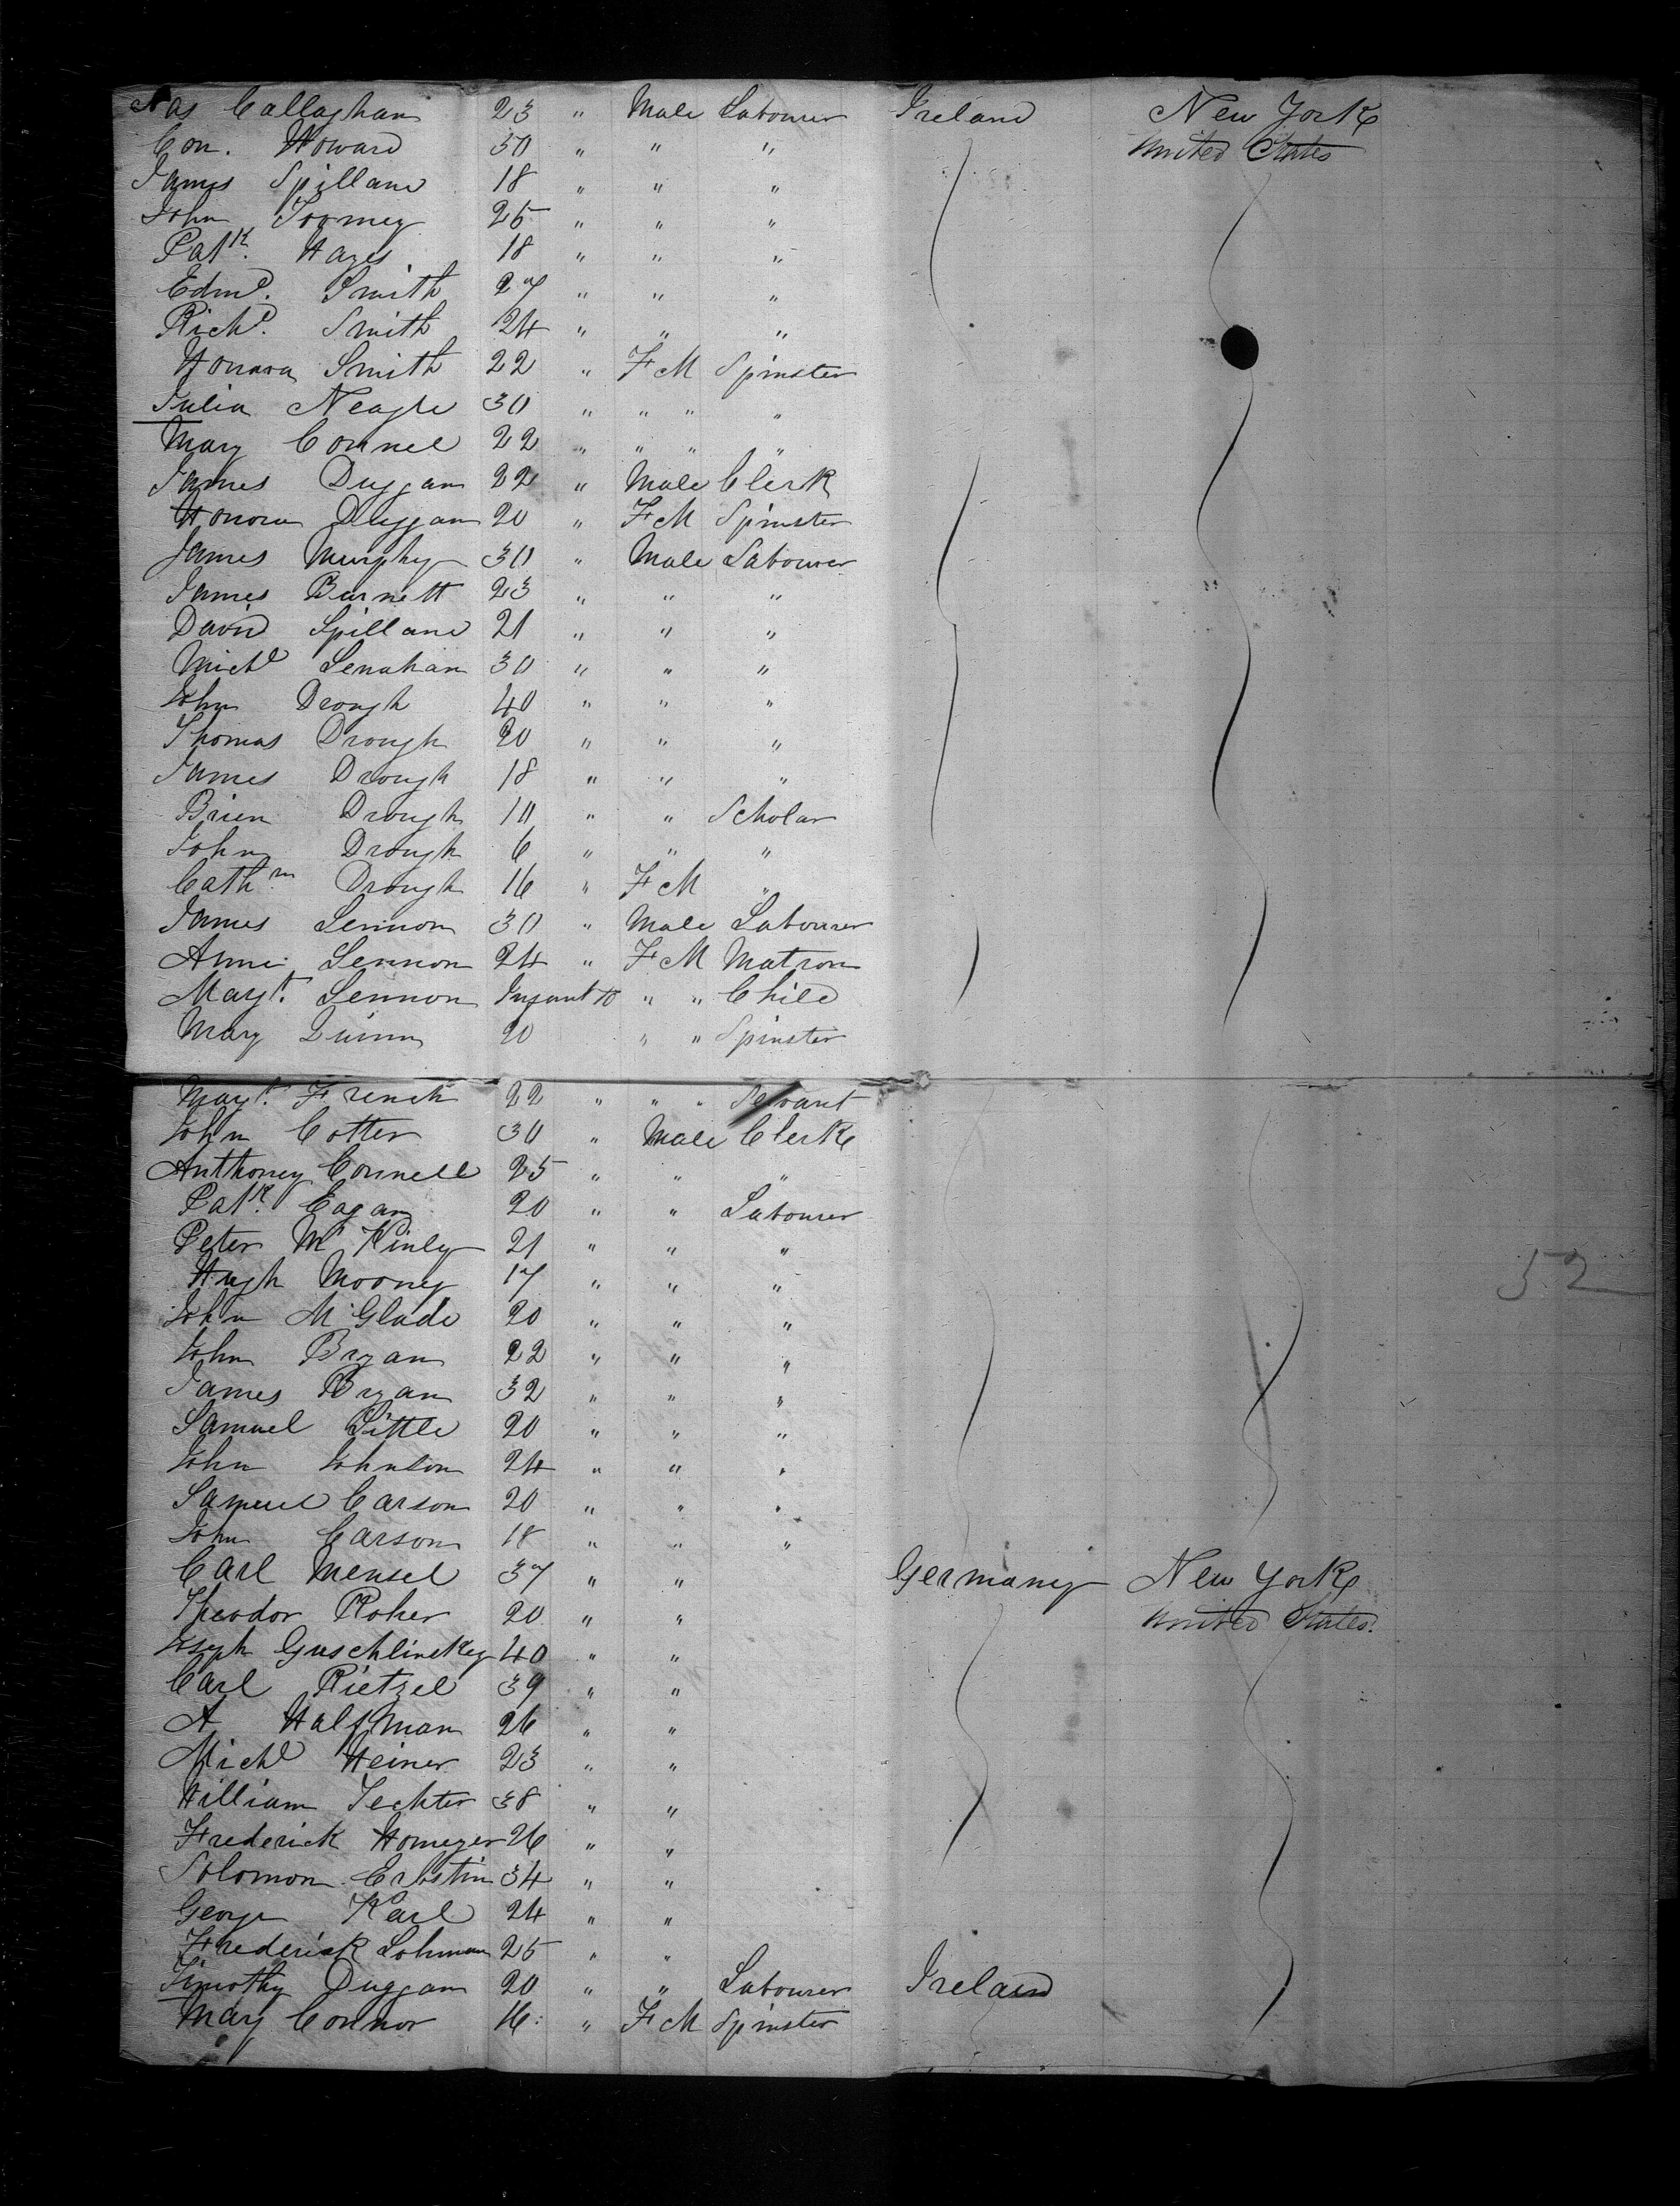 Jas Callaghan 23 " Male Labourer Ireland New York
Con. Howard 30 " " " United States
James Spillane 18 " " "
John Toomey 25 " " "
Patk. Hayes 18 " " "
Edmd. Smith 27 " " "
Richd. Smith 24 " " "
Honora Smith 22 " F M Spinster
Julia Neagle 30 " " " "
Mary Connel 22 " " " "
James Duggan 22 " Male Clerk
Honora Duggan 20 " F M Spinster
James Murphy 30 " Male Labourer
James Burnett 23 " " "
David Spillane 21 " " "
Michl Lenahan 30 " " "
John Drough 40 " " "
Thomas Drough 20 " " "
James Drough 18 " " "
Brien Drough 10 " " Scholar
John Drough 6 " " "
Cathrn Drough 16 " F M "
James Lennon 30 " Male Labourer
Anne Lennon 24 " F M Matron
Margt. Lennon Infant " " Child
Mary Quinn 20 " " Spinster
Margt. French 22 " " " Servant
John Cotter 30 " Male Clerk
Anthoney Connell 25 " " "
Patk. Eagan 20 " " Labourer
Peter Mc Kinley 21 " " "
Hugh Mooney 17 " " "
John McGlade 20 " " "
John Bryan 22 " " "
James Bryan 32 " " "
Samuel Little 20 " " "
John Johnson 24 " " "
Samuel Carson 20 " " "
John Carson 18 " " "
Carl Mensel 37 " " Germany New York
Theodor Roher 20 " " United States.
Joseph Guschlinskey 40 " "
Carl Rietzel 39 " "
A Halfman 26 " "
Michl Heiner 23 " "
William Techter 38 " "
Frederick Homeyer 26 " "
Solomon Erbstin 34 " "
George Karl 24 " "
Frederick Lohman 25 " "
Timothy Duggan 20 " " Labourer Ireland
Mary Connor 16 " F M Spinster
52